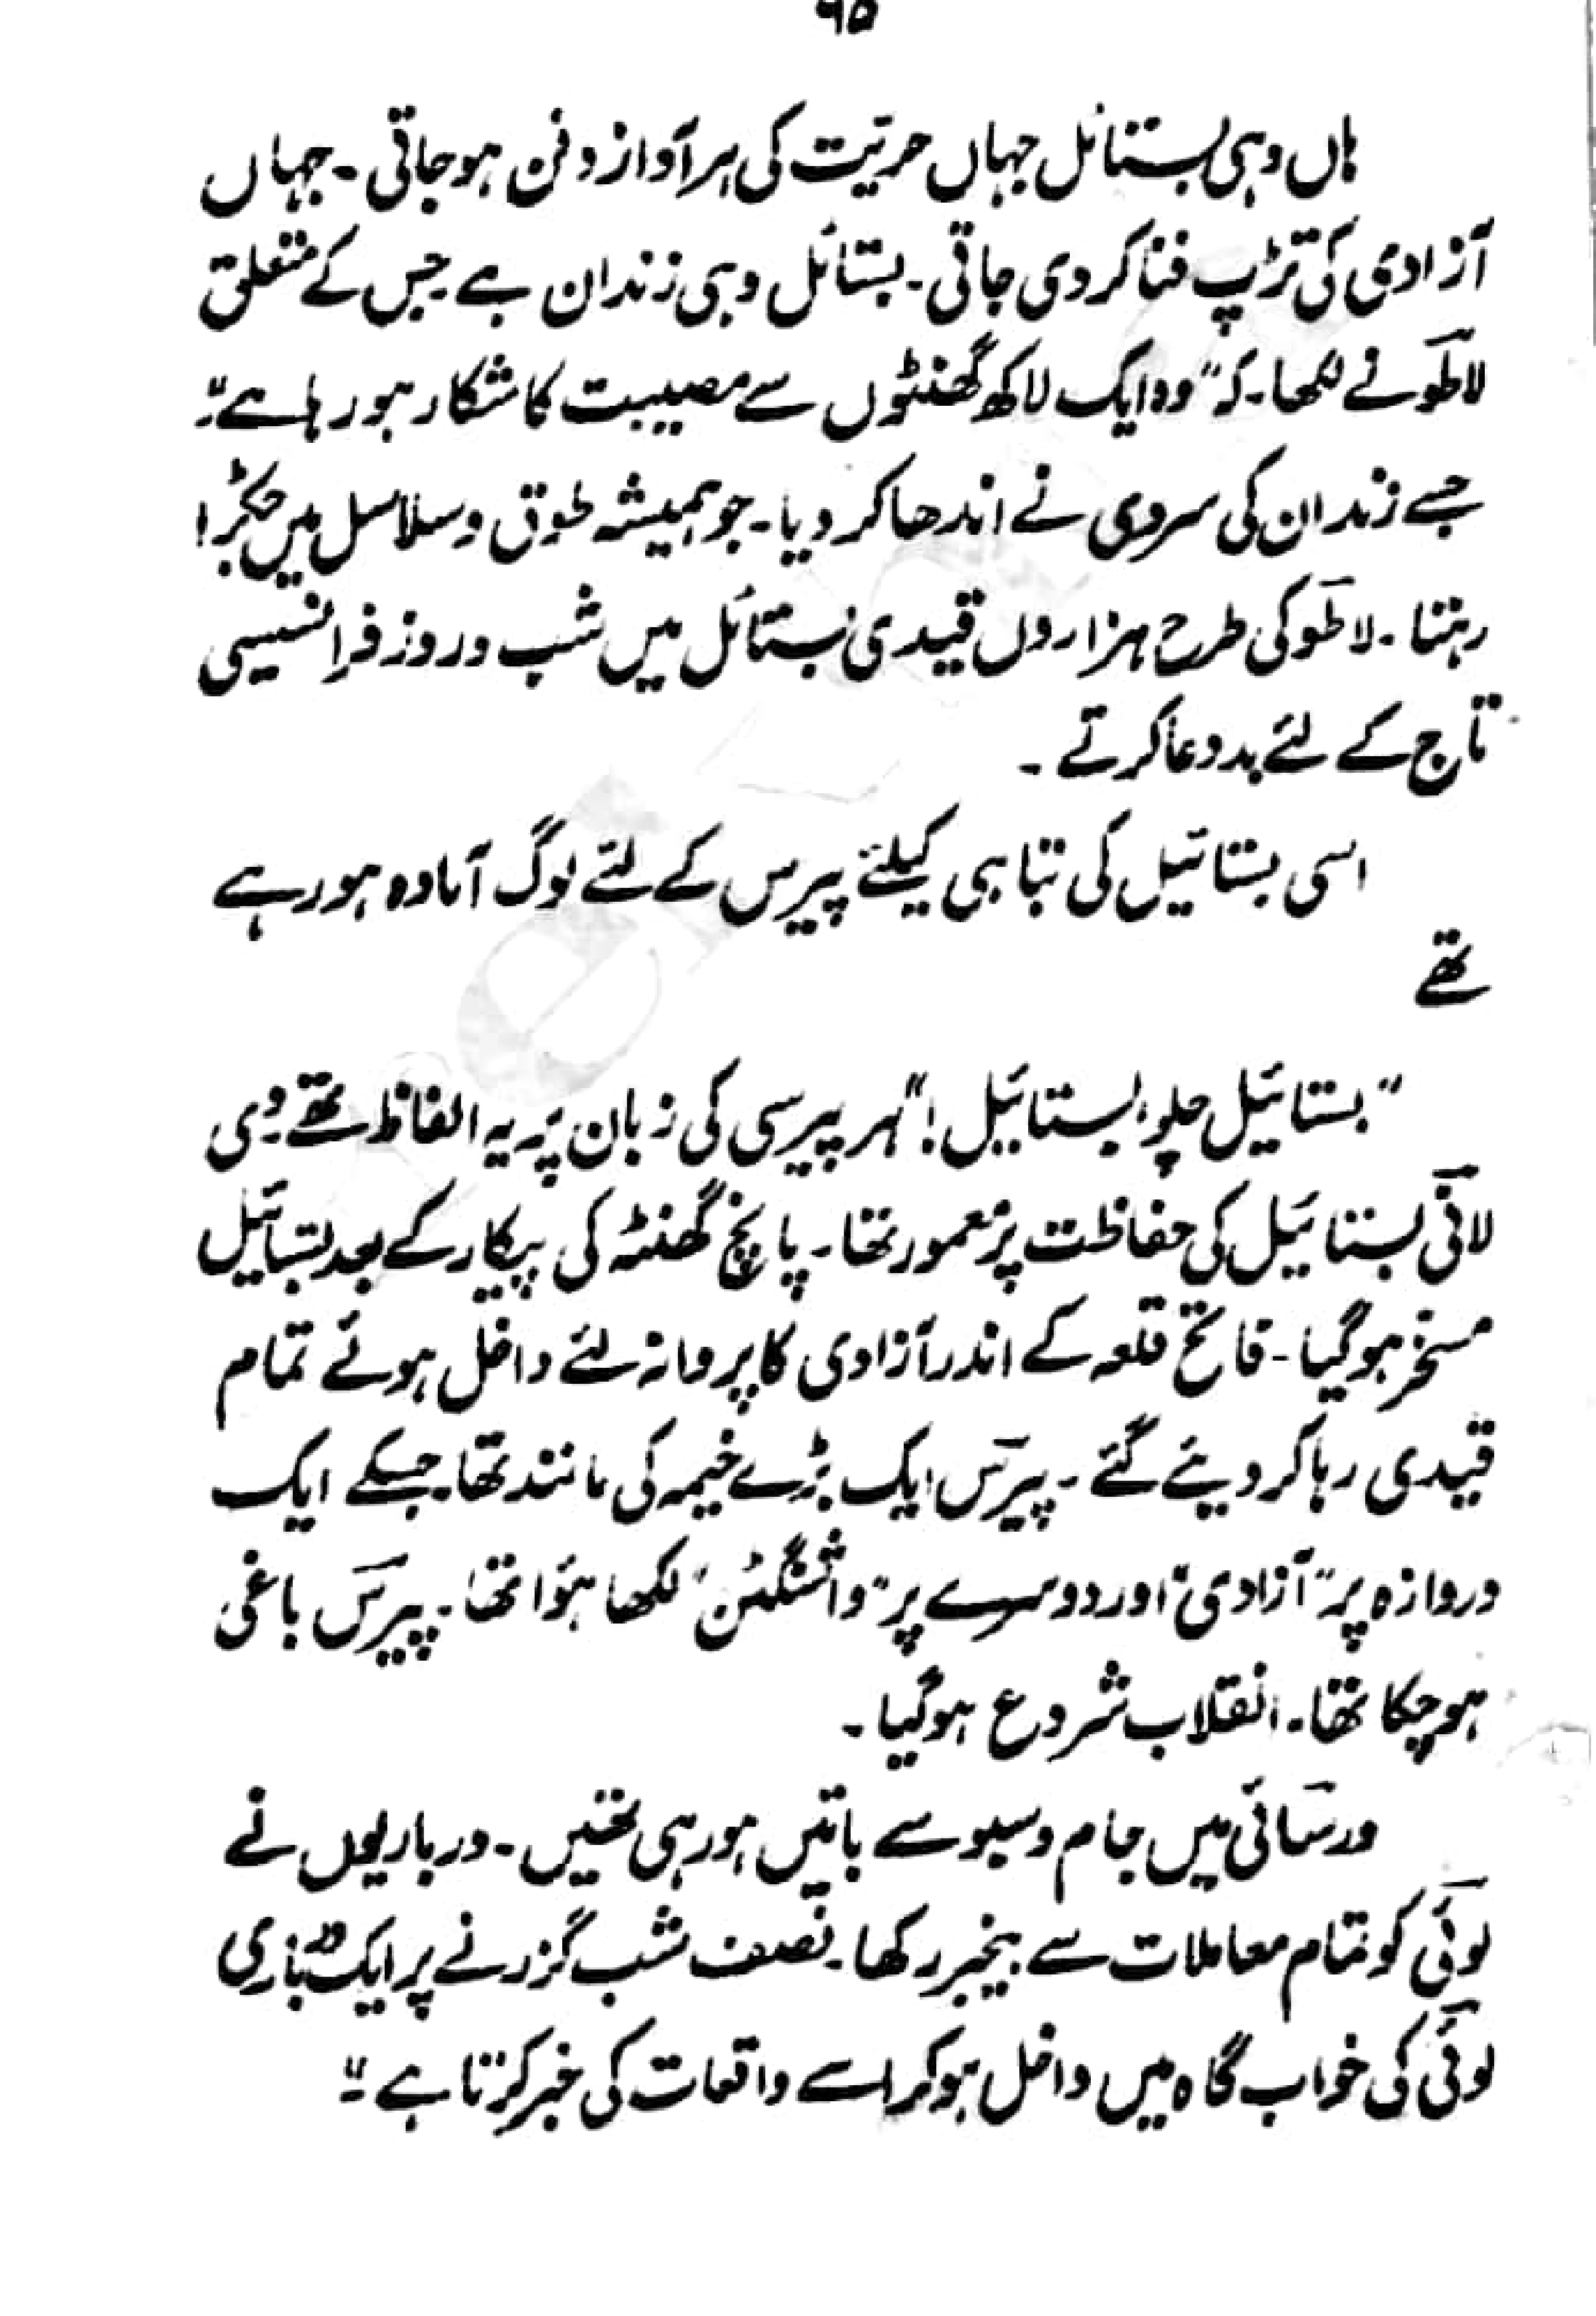 ۹۵
ہاں وہی بستائل جہاں حریّت کی ہر آواز دفن ہو جاتی ۔ جہاں
آزادی کی تڑپ فنا کر دی جاتی ۔ بستائل وہی زندان ہے جس کے متعلق
لاطو نے لکھا ۔ کہ “وہ ایک لاکھ گھنٹوں سے مصیبت کا شکار ہو رہا ہے ”۔
جسے زندان کی سردی نے اندھا کر دیا ۔ جو ہمیشہ طوق و سلاسل میں جکڑا
رہتا ۔ لاطو کی طرح ہزاروں قیدی بستائل میں شب و روز فرانسیسی
تاج کے لئے بددعا کرتے ۔
اسی بستائیل کی تباہی کیلئے پیرس کے لئے لوگ آمادہ ہو رہے
تھے
“بستائیل چلو، بستائیل !” ہر پیرسی کی زبان پہ یہ الفاظ تھے ۔ ڈی
لانی بستائیل کی حفاظت پر معمور تھا ۔ پانچ گھنٹہ کی پیکار کے بعد بستائیل
مسخر ہو گیا ۔ فاتح قلعہ کے اندر آزادی کا پروانہ لئے داخل ہوئے تمام
قیدی رہا کر دیئے گئے ۔ پیرس ایک بڑے خیمہ کی مانند تھا ۔ جسکے ایک
دروازہ پر “آزادی” اور دوسرے پر “واشنگٹن” لکھا ہؤا تھا ۔ پیرس باغی
ہو چکا تھا ۔ انقلاب شروع ہو گیا ۔
ورسائی میں جام و سبو سے باتیں ہو رہی تھیں ۔ درباریوں نے
لوئی کو تمام معاملات سے بیخبر رکھا ۔ نصف شب گزرنے پر ایک درباری
لوئی کی خواب گاہ میں داخل ہو کر اسے واقعات کی خبر کرتا ہے ۔”